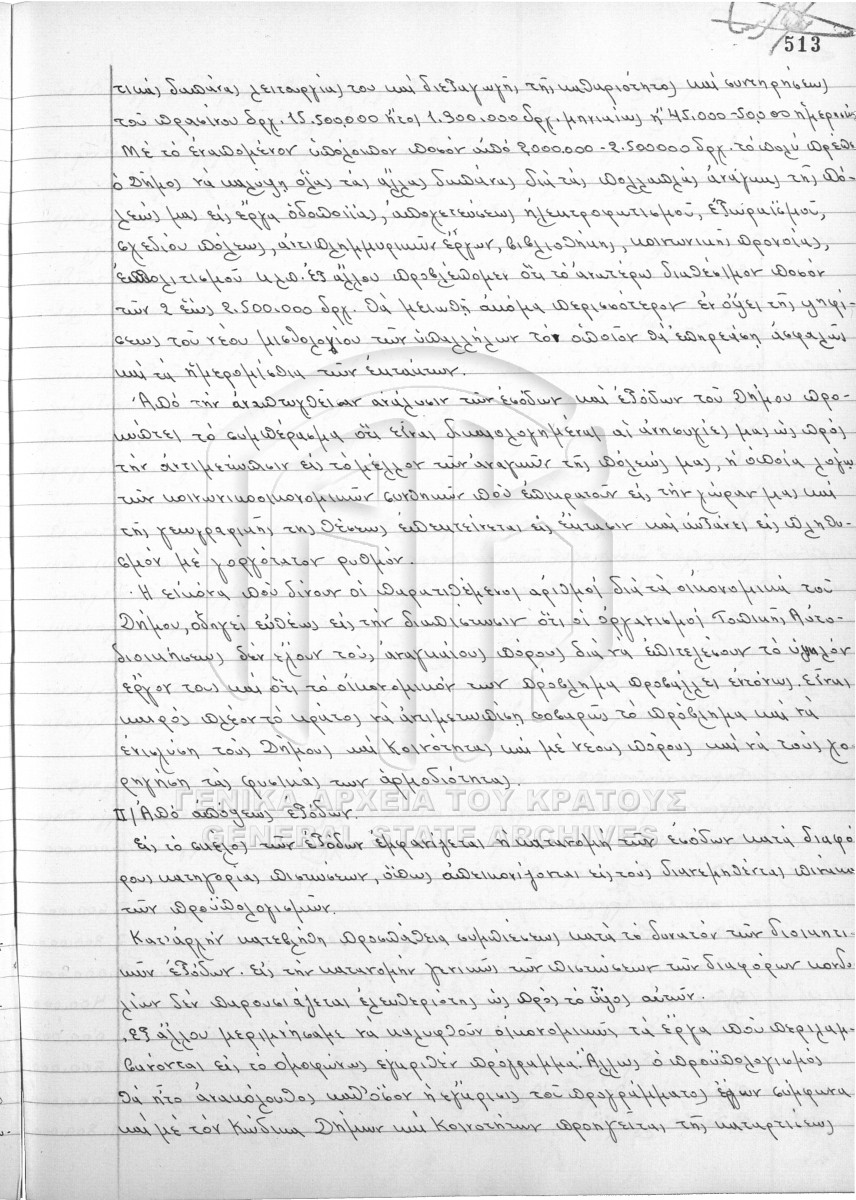 513
τικάς δαπάνας λειτουργίας του καί διεξαγωγῆς τῆς καθαριότητος καί συντηρήσεως
τοῦ πρασίνου δρχ. 15.500.000 ἤτοι 1.300.000 δρχ. μηνιαίως ἤ 45.000-50.000 ἡμερησίως
Μέ τό ἐναπομένον ὑπόλοιπον ποσόν ἀπό 2.000.000-2.500000 δρχ. τό πολύ πρέπει
ὁ Δῆμος νά καλύψη ὅλας τάς ἄλλας δαπάνας διά τάς πολλαπλάς ἀνάγκας τῆς πό-
λεώς μας εἰς ἔργα ὁδοποιίας, ἀποχετεύσεως ἠλεκτροφωτισμοῦ, ἐξωραϊσμοῦ,
σχεδίου πόλεως, ἀντιπλημμυρικῶν ἔργων, βιβλιοθήκης, κοινωνικῆς προνοίας,
ἐκπολιτισμοῦ κ.λ.π. ἐξ ἄλλου προβλέπομεν ὅτι τό ἀνωτέρω διαθέσιμον ποσόν
τῶν 2 ἕως 2.500.000 δρχ. θά μειωθῆ ἀκόμα περισσότερον ἐν ὄψει τῆς ψηφί-
σεως τοῦ νέου μισθολογίου τῶν ὑπαλλήλων τό ὁποῖον θά ἐπηρεάση ἀσφαλῶς
καί τά ἡμερομίσθια τῶν ἐκτάκτων.
Ἀπό τήν ἀναπτυχθεῖσαν ἀνάλυσιν τῶν ἐσόδων καί ἐξόδων τοῦ Δήμου προ-
κύπτει τό συμπέρασμα ὅτι εἶναι δικαιολογημέναι αἱ ἀνησυχίες μας ὡς πρός
τήν ἀντιμετώπισιν εἰς τό μέλλον τῶν ἀναγκῶν τῆς πόλεώς μας, ἡ ὁποία λόγω
τῶν κοινωνικοοικονομικῶν συνθηκῶν πού ἐπικρατοῦν εἰς τήν χώραν μας καί
τῆς γεωγραφικῆς της θέσεως ἐπεκτείνεται εἰς ἔκτασιν καί αὐξάνει εἰς πληθυ-
σμόν μέ γοργότατον ρυθμόν.
Ἡ εἰκόνα πού δίνουν οἱ παρατιθέμενοι ἀριθμοί διά τά οἰκονομικά τοῦ
Δήμου, ὁδηγεῖ εὐθέως εἰς τήν διαπίστωσιν ὅτι οἱ ὀργανισμοί Τοπικῆς Αὐτο-
διοικήσεως δέν ἔχουν τούς ἀναγκαίους πόρους διά νά ἐπιτελέσουν τό ὑψηλόν
ἔργον τους καί ὅτι τό οἰκονομικόν των πρόβλημα προβάλλει ἐντόνως. Εἶναι
καιρός πλέον τό κράτος νά ἀντιμετωπίση σοβαρῶς τό πρόβλημα καί νά
ἐνισχύση τους Δήμους καί Κοινότητας καί μέ νέους πόρους καί νά τούς χο-
ρηγήση τάς φυσικάς των ἁρμοδιότητας.
ΓΕΝΙΚΑ ΑΡΧΕΙΑ ΤΟΥ ΚΡΑΤΟΥΣ
II/ Ἀπό ἀπόψεως ἐξόδων.
GENERAL STATE ARCHIVES
Εἰς τό σκέλος τῶν ἐξόδων ἐμφανίζεται ἡ κατανομή τῶν ἐσόδων κατά διαφό-
ρους κατηγορίας πιστώσεων, ὅπως ἀπεικονίζονται εἰς τούς διανεμηθέντας πίνακας
τῶν προϋπολογισμῶν.
Κατ' ἀρχήν κατεβλήθη προσπάθεια συμπιέσεως κατά τό δυνατόν τῶν διοικητι-
κῶν ἐξόδων. Εἰς τήν κατανομήν γενικῶς τῶν πιστώσεων τῶν διαφόρων κονδυ-
λίων δέν παρουσιάζεται ἐλευθεριότης ὡς πρός τό ὕψος αὐτῶν.
Ἐξ ἄλλου μεριμνήσαμε νά καλυφθοῦν οἰκονομικῶς τά ἔργα πού περιλαμ-
βάνονται εἰς τό ὁμοφώνως ἐγκριθέν πρόγραμμα. Ἄλλως ὁ προϋπολογισμός
θά ἦτο ἀνακόλουθος καθ' ὅσον ἡ ἔγκρισις τοῦ προγράμματος ἔργων σύμφωνα
καί μέ τόν Κώδικα Δήμων καί Κοινοτήτων προηγεῖται τῆς καταρτίσεως